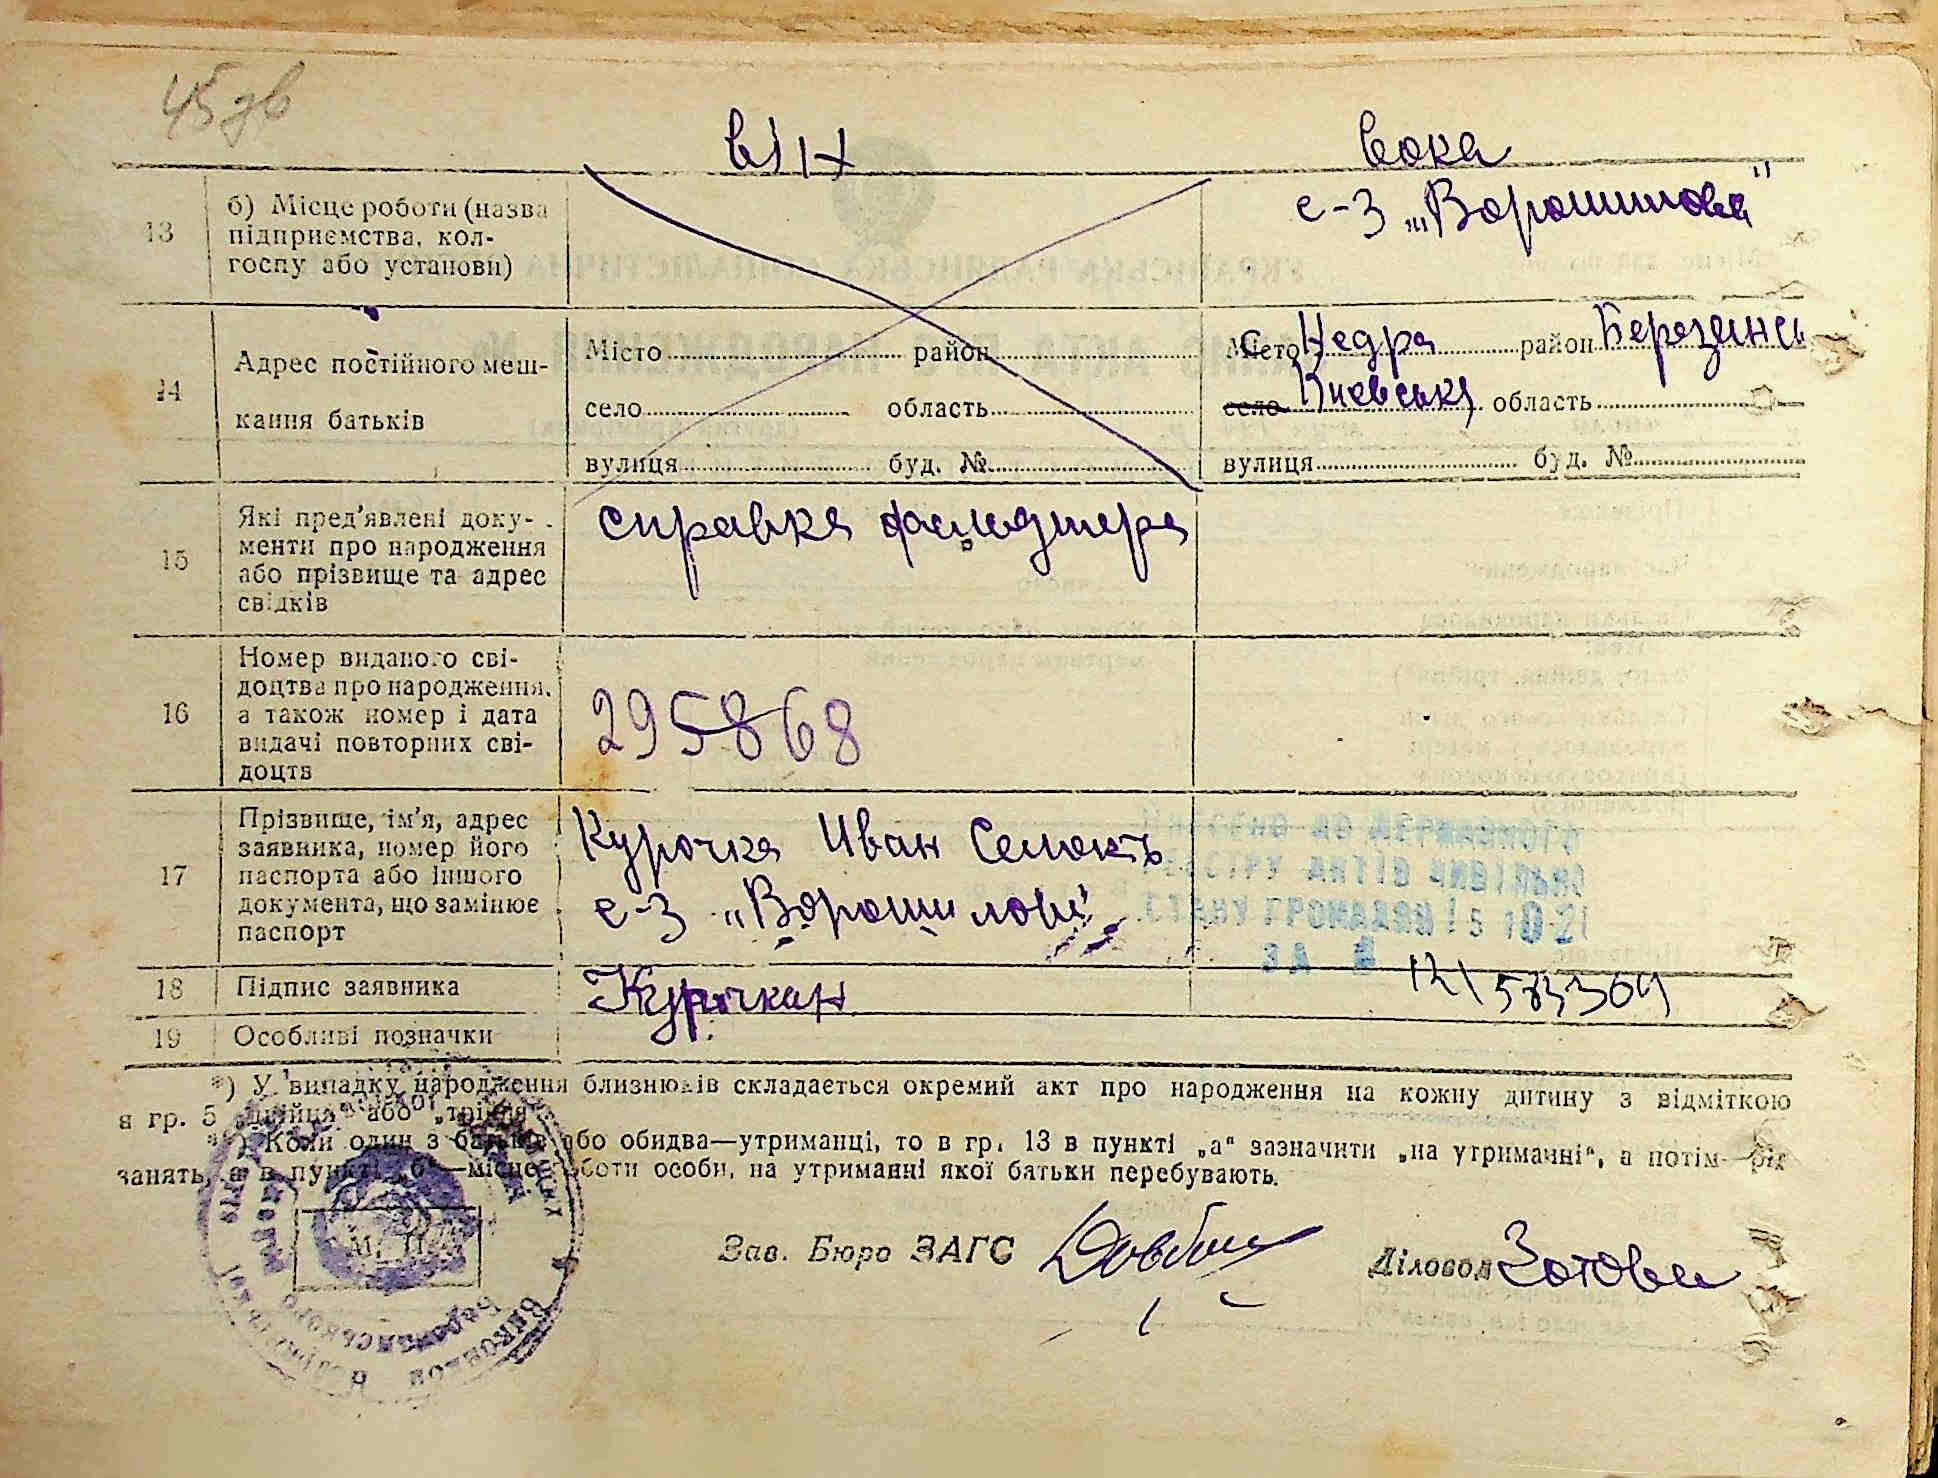 45 зв
він вона
13 б) Місце роботи (назва підприємства, колгоспу або установи)
с-з „Ворошилова"
14 Адрес постійного мешкання батьків
Місто район
село область
вулиця буд. №
Місто с Недра район Березансь
село Киевська область
вулиця буд. №
15 Які пред'явлені документи про народження або прізвище та адрес свідків
справка фельдшера
16 Номер виданого свідоцтва про народження, а також номер і дата видачі повторних свідоцтв
295868
17 Прізвище, ім'я, адрес заявника, номер його паспорта або іншого документа, що замінює паспорт
Курочка Иван
с-з „Ворошилова"
ВНЕСЕНО ДО ДЕРЖАВНОГО
РЕЄСТРУ АКТІВ ЦИВІЛЬНО
СТАНУ ГРОМАДЯН
ЗА №
18 Підпис заявника
19 Особливі позначки
*) У випадку народження близнюків складається окремий акт про народження на кожну дитину з відміткою
в гр. 5 „двійця" або „трійня".
**) Коли один з батьків або обидва—утриманці, то в гр. 13 в пункті „а" зазначити „на утриманні", а потім рід
занять, а в пункті „б"—місце роботи особи, на утриманні якої батьки перебувають.
М. П.
Зав. Бюро ЗАГС Діловод Зотова